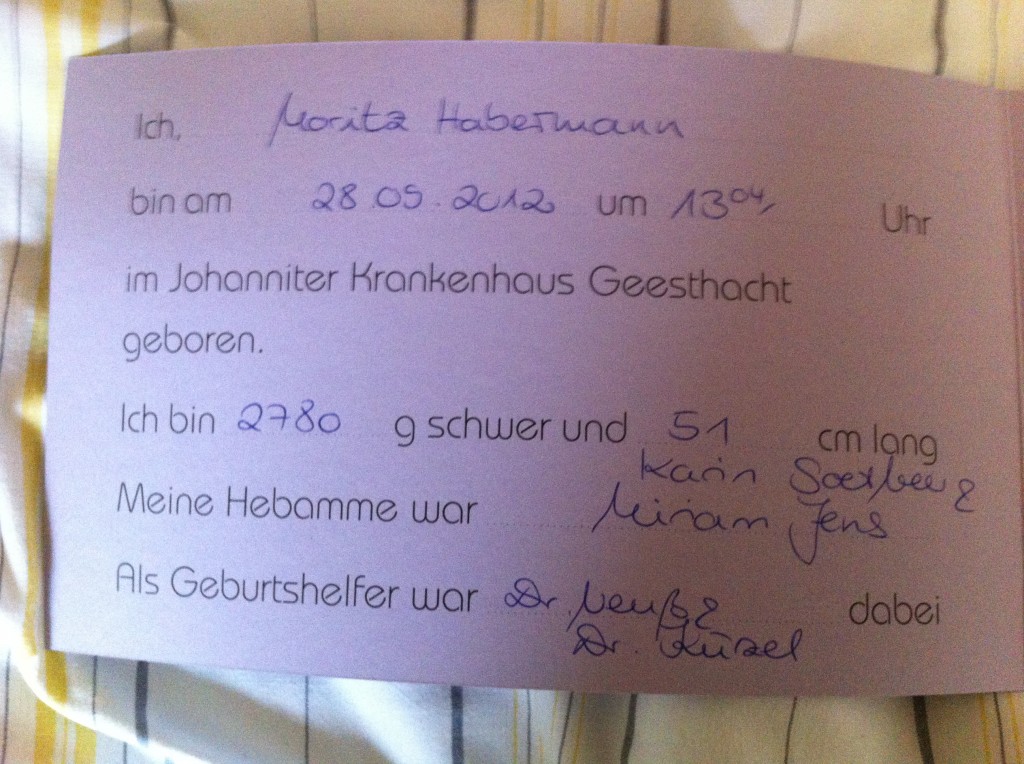 Ich, Moritz Habermann
bin am 28.05.2012 um 13 04 Uhr
im Johanniter Krankenhaus Geesthacht
geboren.
Ich bin 2780 g schwer und 51 cm lang
Karin
Meine Hebamme war Miriam Jens
Als Geburtshelfer war Dr. dabei
Dr.